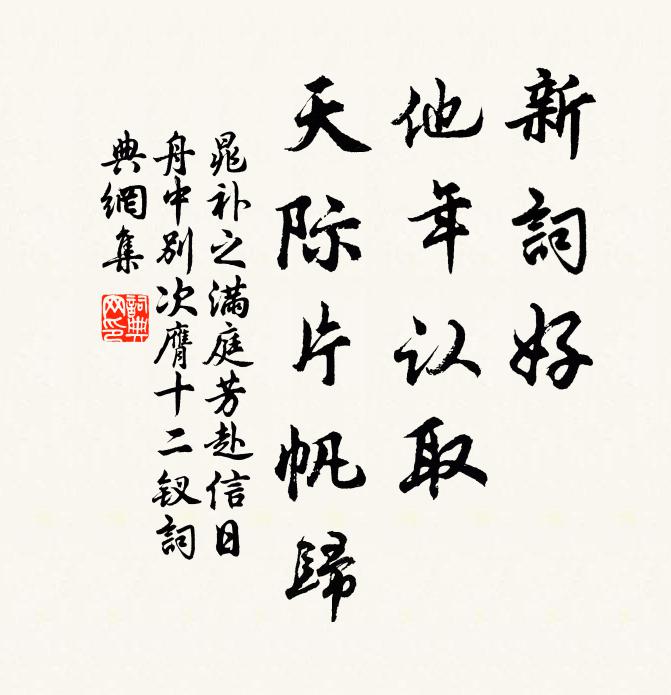 新詞好
他年认取
天际片帆歸
晁补之满庭芳赴信日
舟中别次膺十二钗詞
典網集
詞典网印